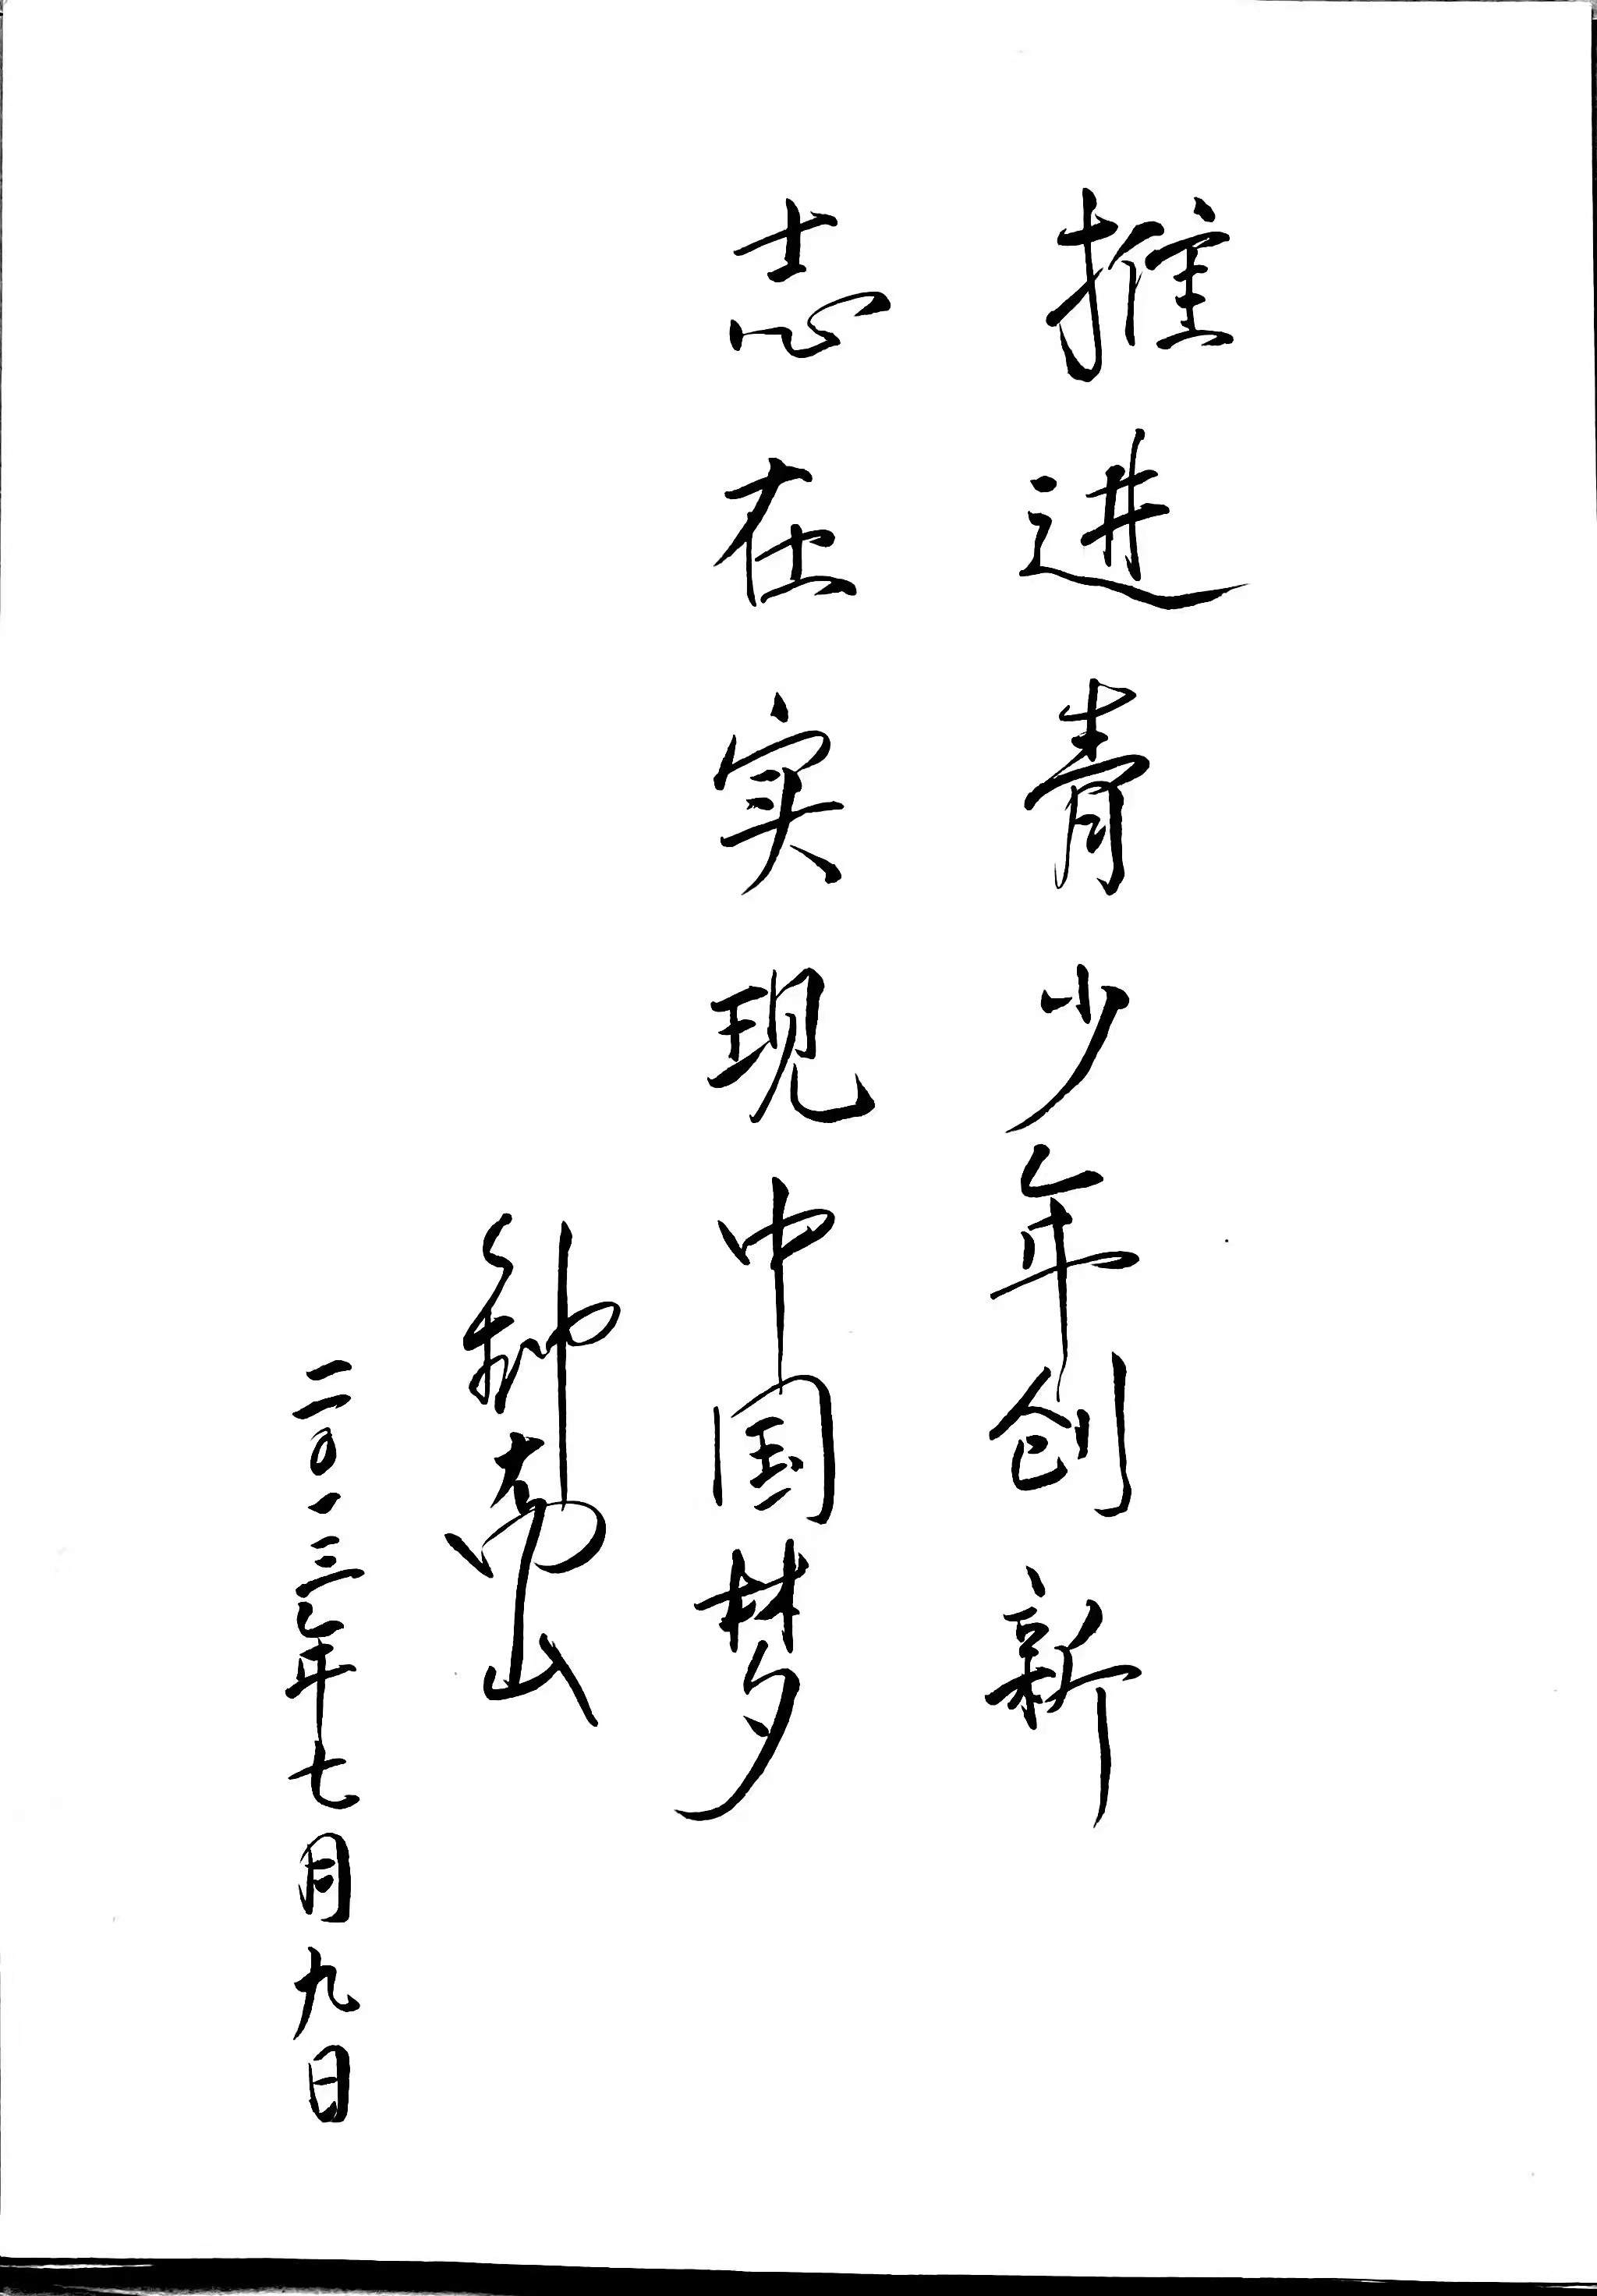 推进青少年创新
志在实现中国梦
钟南山
二0一三年七月九日